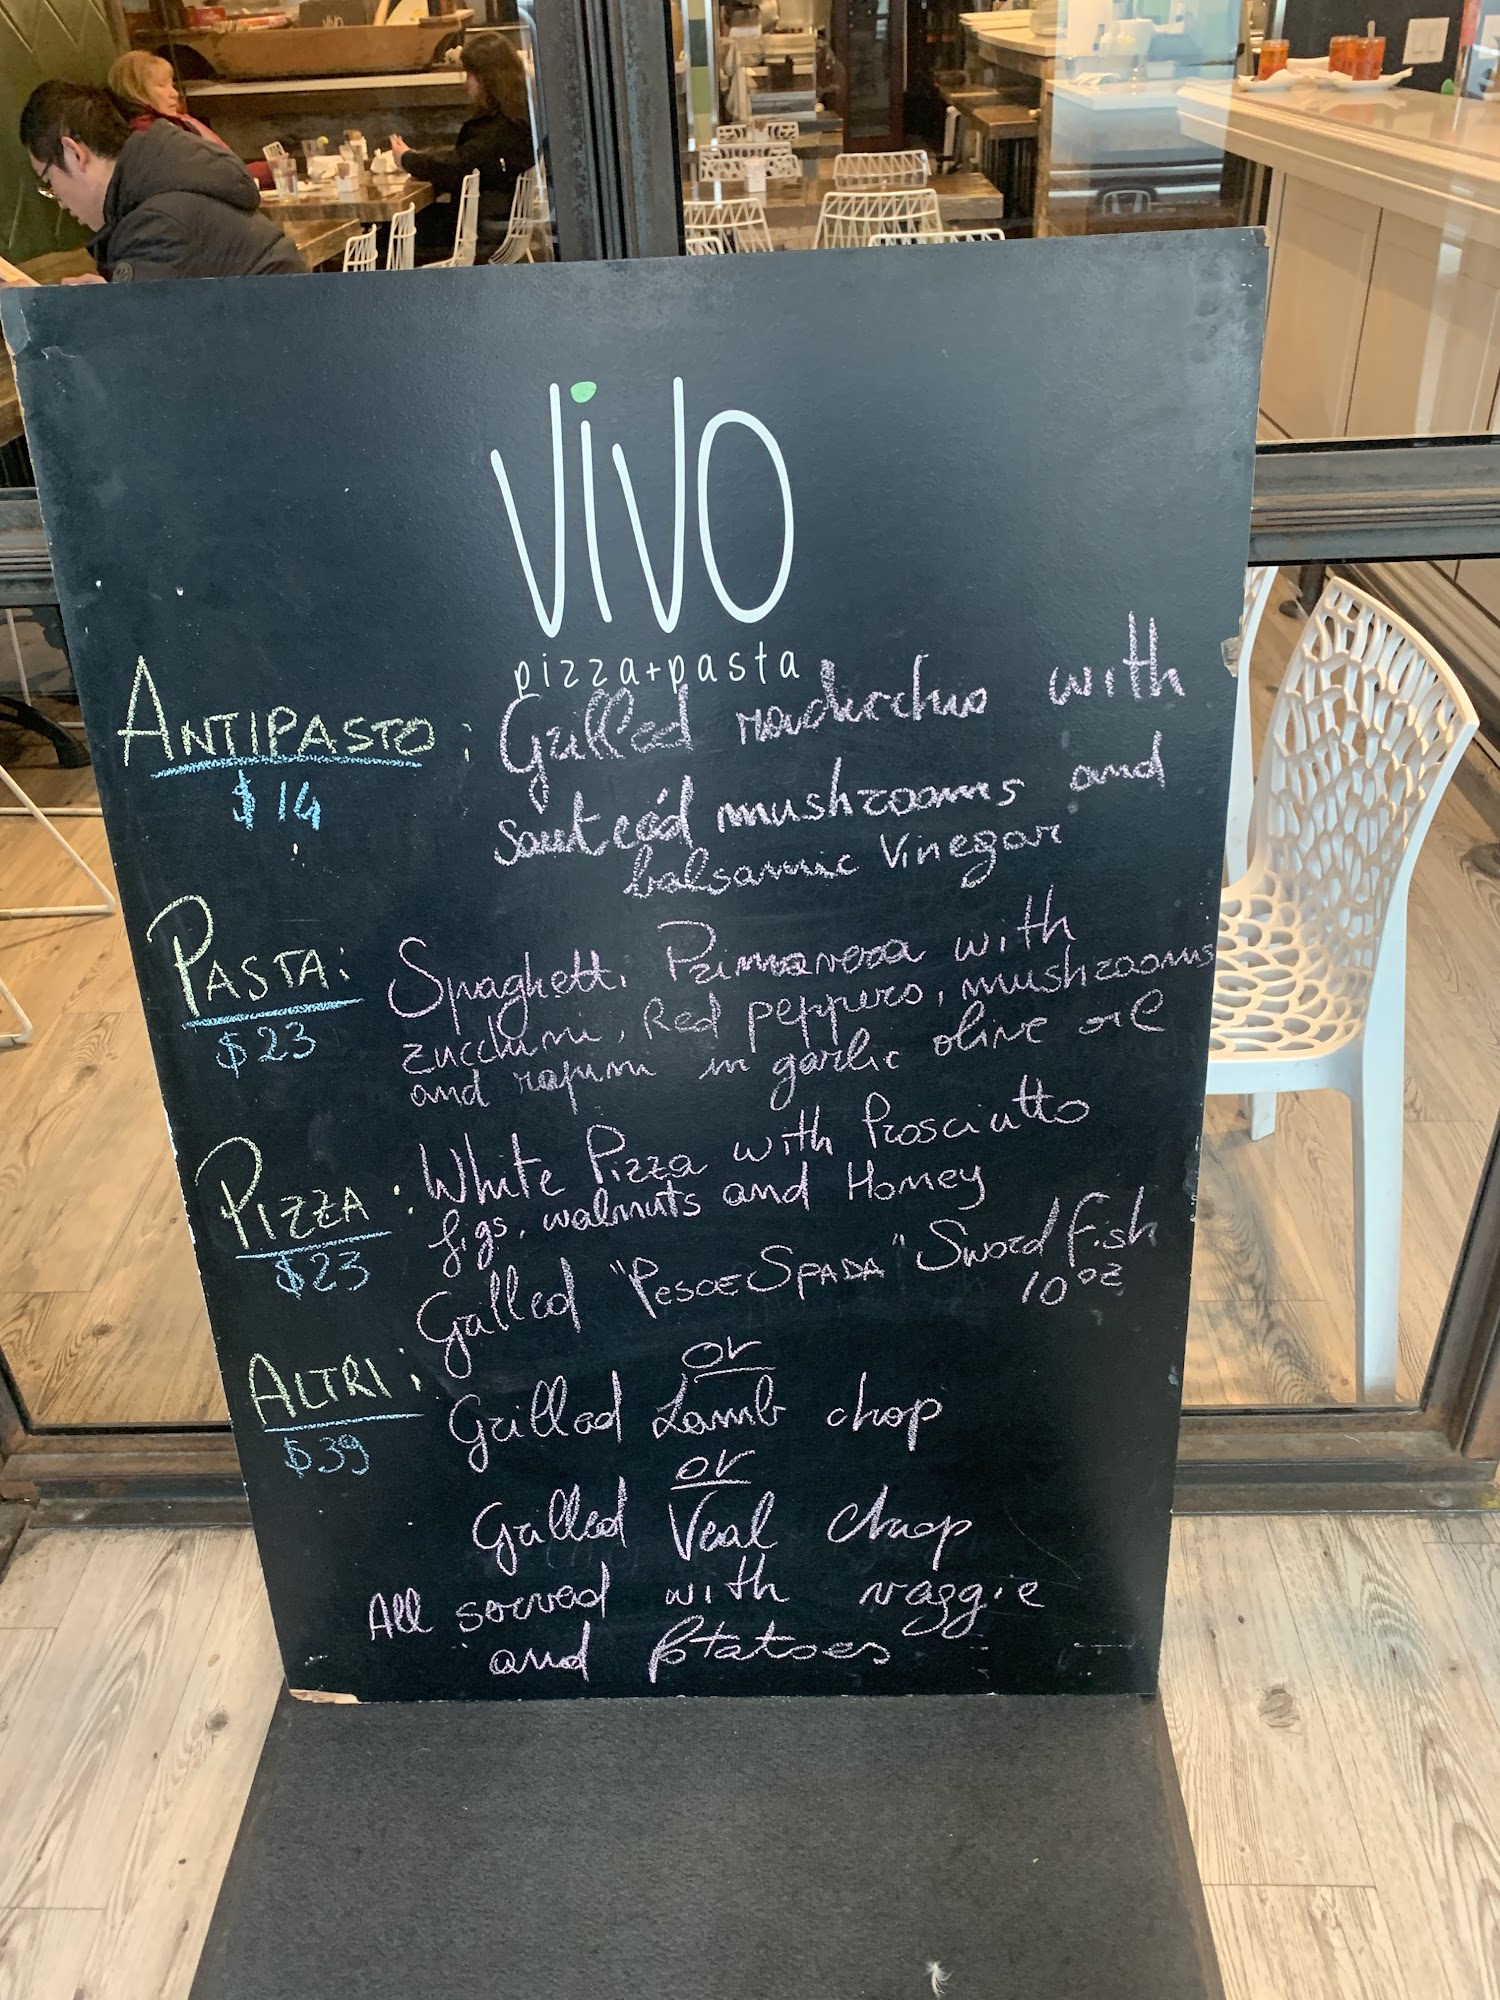 vivo
pizza+pasta
ANTIPASTO: Grilled radicchio with
$14
sauteéd mushrooms and
balsamic Vinegar
PASTA: Spaghetti Primavera with
$23
zucchini, Red peppers, mushrooms
and rapini in garlic olive oil
PIZZA: White Pizza with Prosciutto
$23
figs, walnuts and Honey
ALTRI: Grilled "PESCE SPADA" Sword fish
$39
10 oz
or
Grilled Lamb chop
or
Grilled Veal chop
All served with vaggie
and Potatoes